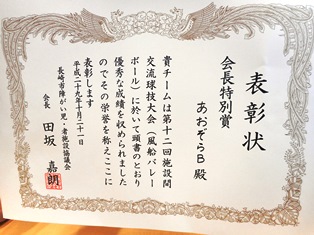 表彰状
会長特別賞
あおぞらB 殿
貴チームは第十二回施設間
交流球技大会(風船バレー
ボール)に於いて頭書のとおり
優秀な成績を収められました
のでその栄誉を称えここに
表彰します
平成二十九年十月二十一日
長崎市障がい児・者施設協議会
会長 田坂 嘉朗